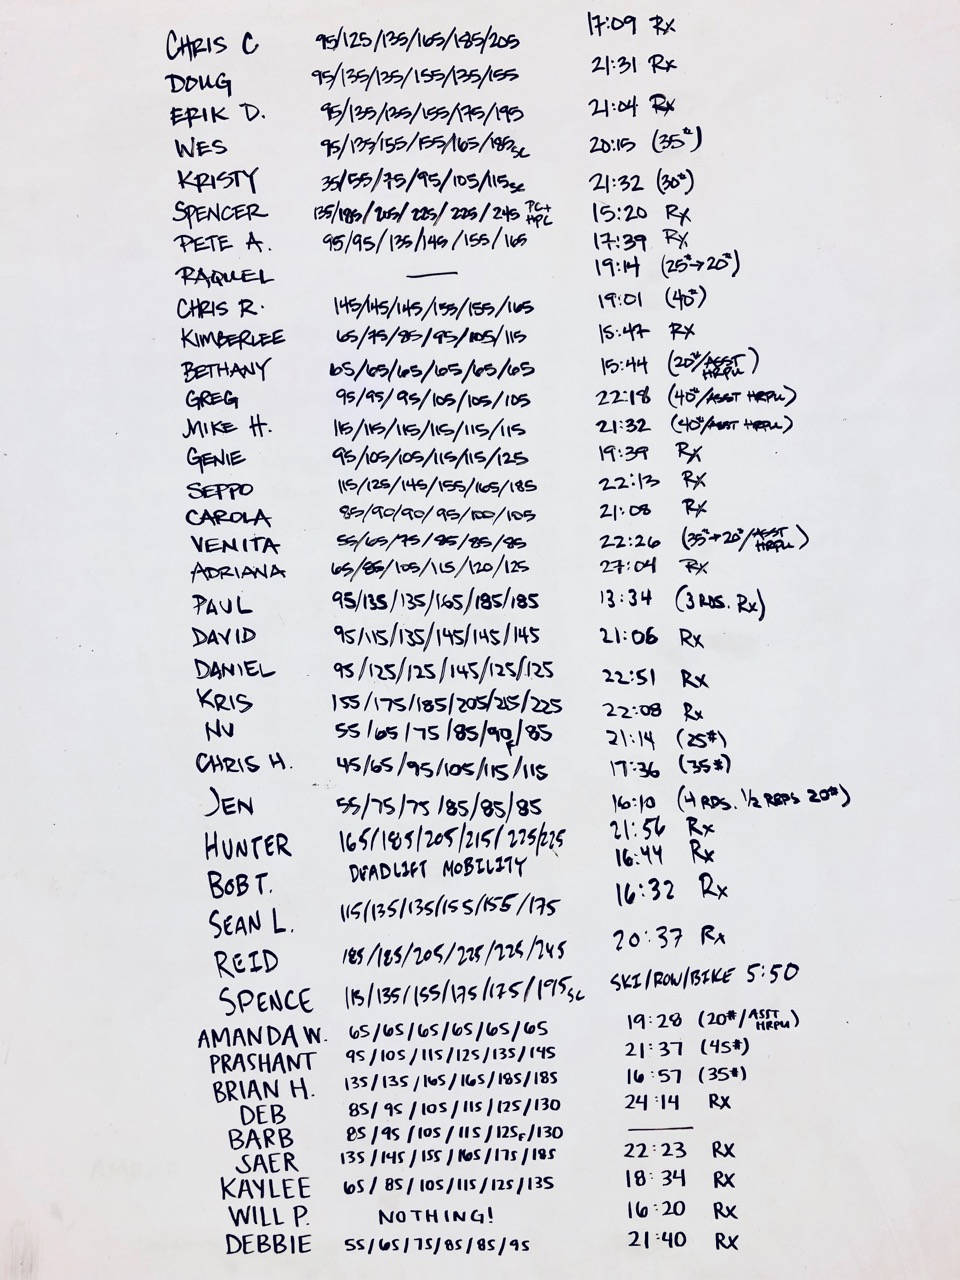 CHRIS C 95/125/135/165/185/205 17:09 Rx
DOUG 95/135/135/155/135/155 21:31 Rx
ERIK D. 95/135/135/155/175/195 21:04 Rx
WES 95/135/155/155/165/185SC 20:15 (35#)
KRISTY 35/55/75/95/105/115SC 21:32 (30#)
SPENCER 135/185/205/225/225/245 PC+ HPC 15:20 Rx
PETE A. 95/95/135/145/155/165 17:39 Rx
RAQUEL — 19:14 (25#→20#)
CHRIS R. 145/145/145/155/155/165 19:01 (40#)
KIMBERLEE 65/75/85/95/105/115 15:47 Rx
BETHANY 65/65/65/65/65/65 15:44 (20#/ASST HRPU)
GREG 95/95/95/105/105/105 22:18 (40#/ASST HRPU)
MIKE H. 115/115/115/115/115/115 21:32 (40#/ASST HRPU)
GENIE 95/105/105/115/115/125 19:39 Rx
SEPPO 115/125/145/155/165/185 22:13 Rx
CAROLA 85/90/90/95/100/105 21:08 Rx
VENITA 55/65/75/85/85/85 22:26 (35#→20#/ASST HRPU)
ADRIANA 65/85/105/115/120/125 27:04 Rx
PAUL 95/135/135/165/185/185 13:34 (3 RDS. Rx)
DAVID 95/115/135/145/145/145 21:06 Rx
DANIEL 95/125/125/145/125/125 22:51 Rx
KRIS 155/175/185/205/215/225 22:08 Rx
NU 55/65/75/85/90F/85 21:14 (25#)
CHRIS H. 45/65/95/105/115/115 17:36 (35#)
JEN 55/75/75/85/85/85 16:10 (4 RDS. 1/2 REPS 20#)
HUNTER 165/185/205/215/225/225 21:56 Rx
BOB T. DEADLIFT MOBILITY 16:44 Rx
SEAN L. 115/135/135/155/155/175 16:32 Rx
REID 185/185/205/225/225/245 20:37 Rx
SPENCE 115/135/155/175/175/195SC SKI/ROW/BIKE 5:50
AMANDA W. 65/65/65/65/65/65 19:28 (20#/ASST HRPU)
PRASHANT 95/105/115/125/135/145 21:37 (45#)
BRIAN H. 135/135/165/165/185/185 16:57 (35#)
DEB 85/95/105/115/125/130 24:14 Rx
BARB 85/95/105/115/125F/130 —
SAER 135/145/155/165/175/185 22:23 Rx
KAYLEE 65/85/105/115/125/135 18:34 Rx
WILL P. NOTHING! 16:20 Rx
DEBBIE 55/65/75/85/85/95 21:40 Rx